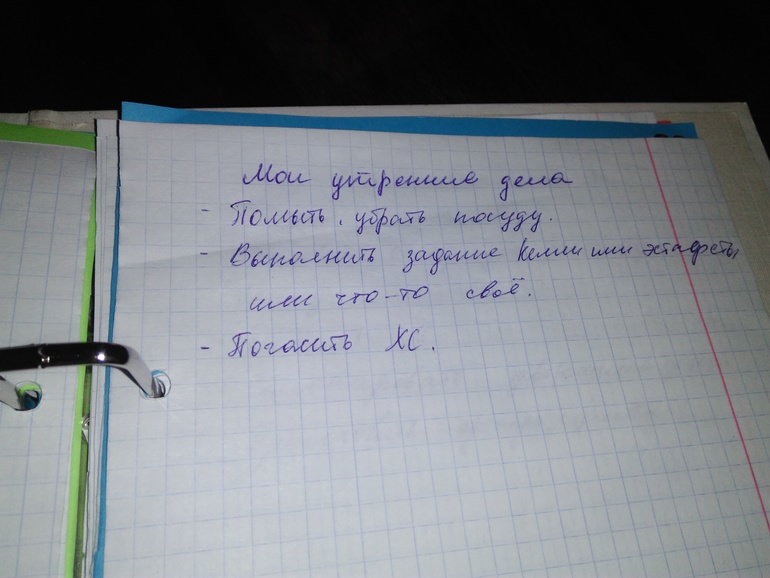 Мои утренние дела
- Помыть, убрать посуду.
- Выполнить задание Келли или эстафеты,
или что-то своё.
- Погасить ХС.